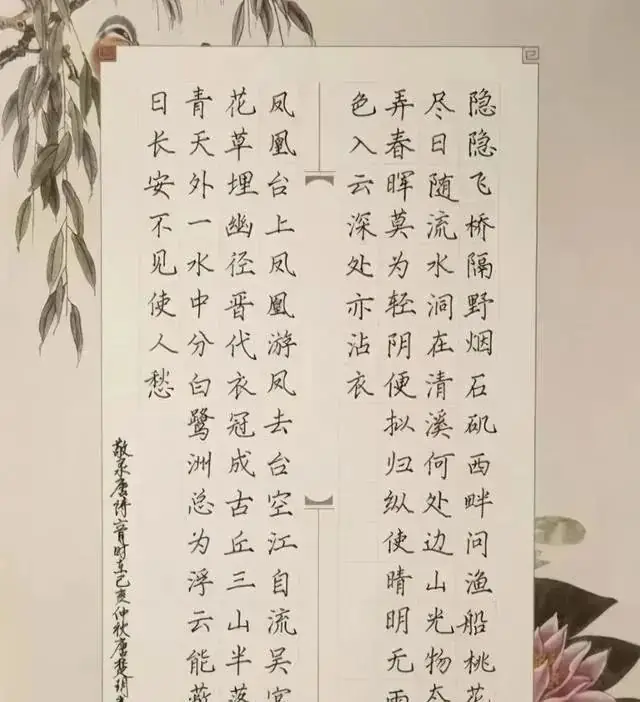 隐隐飞桥隔野烟石矶西畔问渔船桃花
尽日随流水洞在清溪何处边山光物态
弄春晖莫为轻阴便拟归纵使晴明无雨
色入云深处亦沾衣
凤凰台上凤凰游凤去台空江自流吴宫
花草埋幽径晋代衣冠成古丘三山半落
青天外一水中分白鹭洲总为浮云能蔽
日长安不见使人愁
敬录唐诗六首时在己亥仲秋唐楚玥书